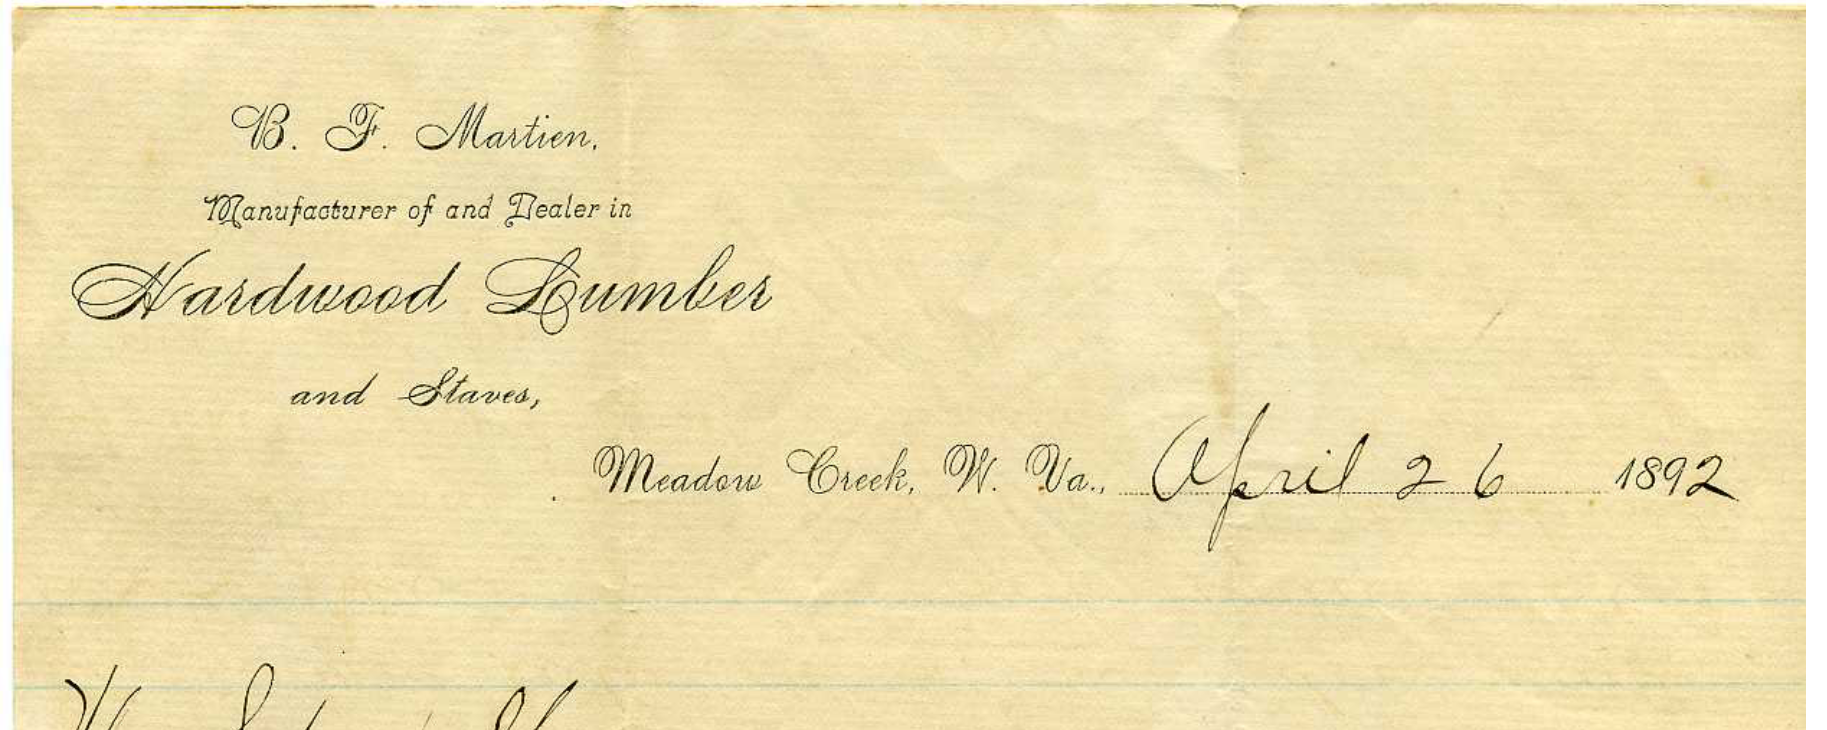 B. F. Martien.
Manufacturer of and Dealer in
Hardwood Lumber
and Staves,
Meadow Creek, W. Va., April 26 1892